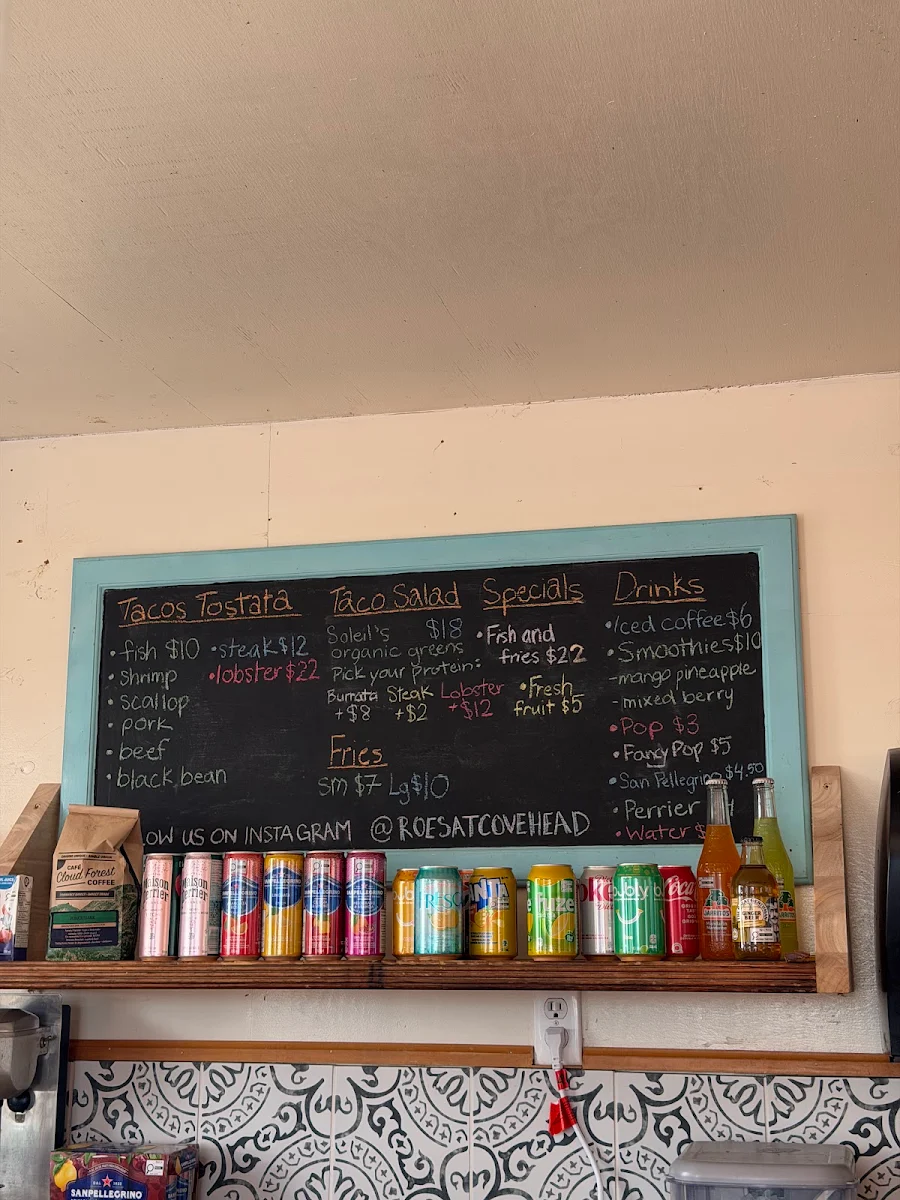 Tacos Tostata
• fish $10 • steak $12
• shrimp • lobster $22
• scallop
• pork
• beef
• black bean
Taco Salad
Soleil's $18
organic greens
Pick your protein:
Burrata Steak Lobster
+$8 +$2 +$12
Fries
Sm $7 Lg $10
Specials
• Fish and
fries $22
• Fresh
fruit $5
Drinks
• Iced coffee $6
• Smoothies $10
- mango pineapple
- mixed berry
• Pop $3
• Fancy Pop $5
• San Pellegrino $4.50
• Perrier
• Water $
OW US ON INSTAGRAM @ROESATCOVEHEAD
CAFÉ
Cloud Forest
COFFEE
maison
perrier
Joly
Coca
JARRITOS
SANPELLEGRINO